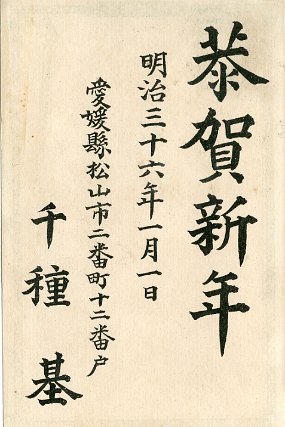 恭賀新年
明治三十六年一月一日
愛媛縣松山市二番町十二番戸
千種基